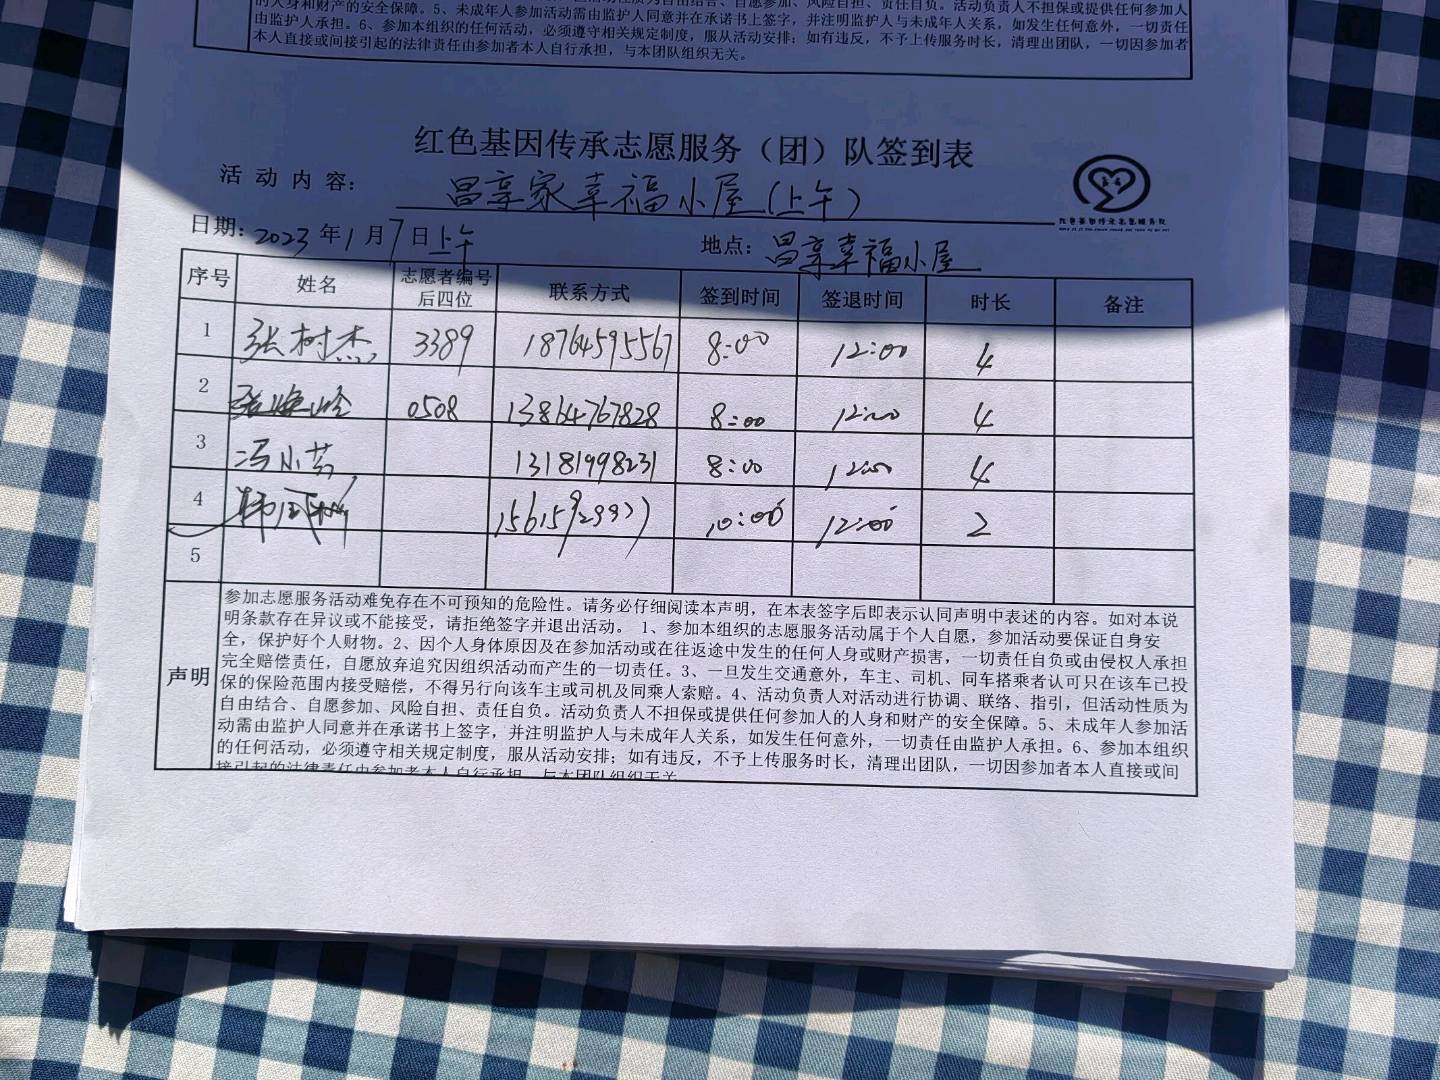 的人身和财产的安全保障。5、未成年人参加活动需由监护人同意并在承诺书上签字，并注明监护人与未成年人关系，如发生任何意外，一切责任
由监护人承担。6、参加本组织的任何活动，必须遵守相关规定制度，服从活动安排；如有违反，不予上传服务时长，清理出团队，一切因参加者
本人直接或间接引起的法律责任由参加者本人自行承担，与本团队组织无关。
红色基因传承志愿服务（团）队签到表
活动内容： 昌享家幸福小屋（上午）
日期：2023年1月7日上午 地点：昌享幸福小屋
序号 姓名 志愿者编号后四位 联系方式 签到时间 签退时间 时长 备注
1 张树杰 3389 18764595567 8:00 12:00 4
2 0508 13864767828 8:00 12:00 4
3 冯小芳 13181998231 8:00 12:00 4
4 10:00 12:00 2
5
声明
参加志愿服务活动难免存在不可预知的危险性。请务必仔细阅读本声明，在本表签字后即表示认同声明中表述的内容。如对本说
明条款存在异议或不能接受，请拒绝签字并退出活动。 1、参加本组织的志愿服务活动属于个人自愿，参加活动要保证自身安
全，保护好个人财物。2、因个人身体原因及在参加活动或在往返途中发生的任何人身或财产损害，一切责任自负或由侵权人承担
完全赔偿责任，自愿放弃追究因组织活动而产生的一切责任。3、一旦发生交通意外，车主、司机、同车搭乘者认可只在该车已投
保的保险范围内接受赔偿，不得另行向该车主或司机及同乘人索赔。4、活动负责人对活动进行协调、联络、指引，但活动性质为
自由结合、自愿参加、风险自担、责任自负。活动负责人不担保或提供任何参加人的人身和财产的安全保障。5、未成年人参加活
动需由监护人同意并在承诺书上签字，并注明监护人与未成年人关系，如发生任何意外，一切责任由监护人承担。6、参加本组织
的任何活动，必须遵守相关规定制度，服从活动安排；如有违反，不予上传服务时长，清理出团队，一切因参加者本人直接或间
接引起的法律责任由参加者本人自行承担，与本团队组织无关